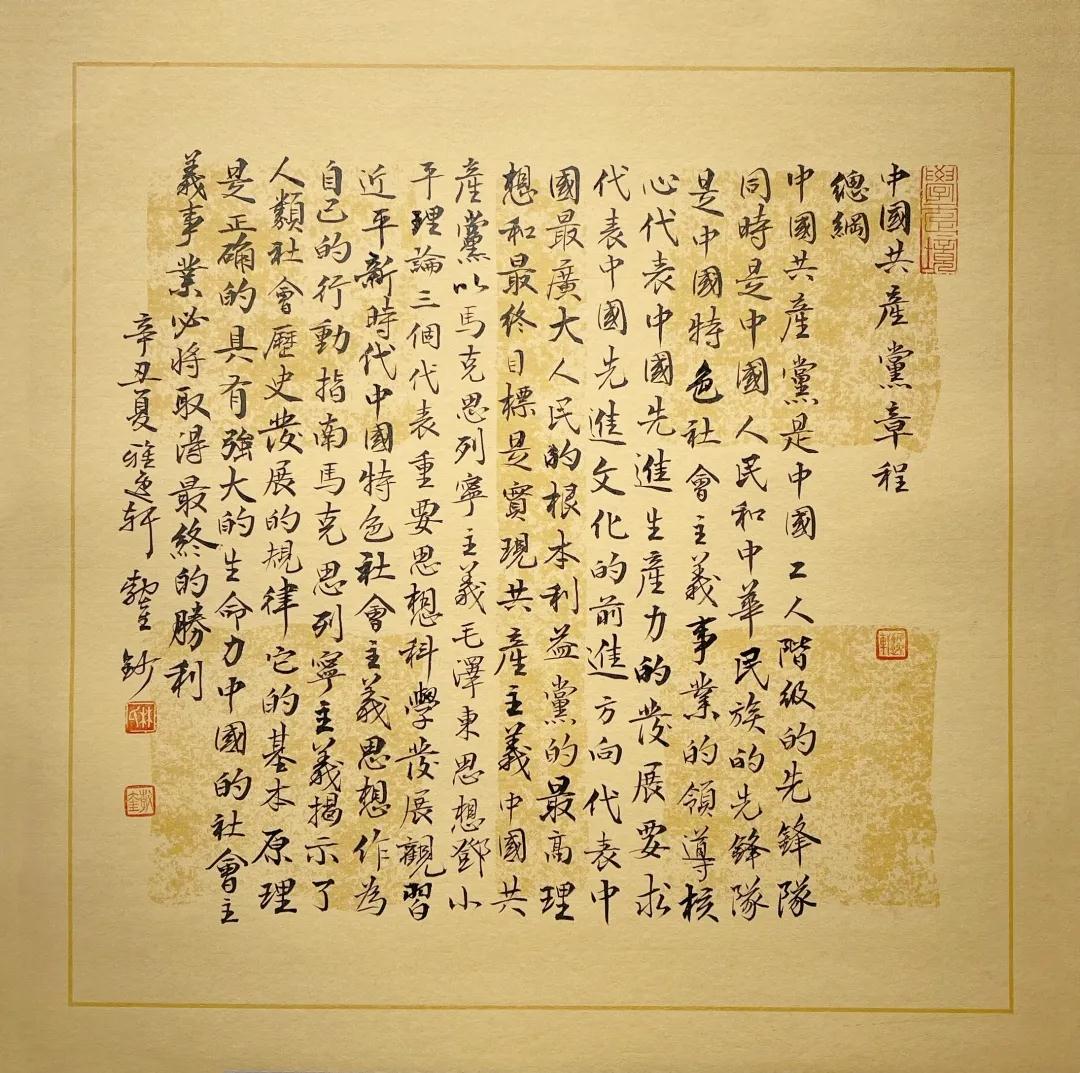 中國共產黨章程
總綱
中國共產黨是中國工人階級的先鋒隊
同時是中國人民和中華民族的先鋒隊
是中國特色社會主義事業的領導核
心代表中國先進生產力的發展要求
代表中國先進文化的前進方向代表中
國最廣大人民的根本利益黨的最高理
想和最終目標是實現共產主義中國共
產黨以馬克思列寧主義毛澤東思想鄧小
平理論三個代表重要思想科學發展觀習
近平新時代中國特色社會主義思想作為
自己的行動指南馬克思列寧主義揭示了
人類社會歷史發展的規律它的基本原理
是正确的具有強大的生命力中國的社會主
義事業必將取得最終的勝利
辛丑夏雅逸軒 鈔